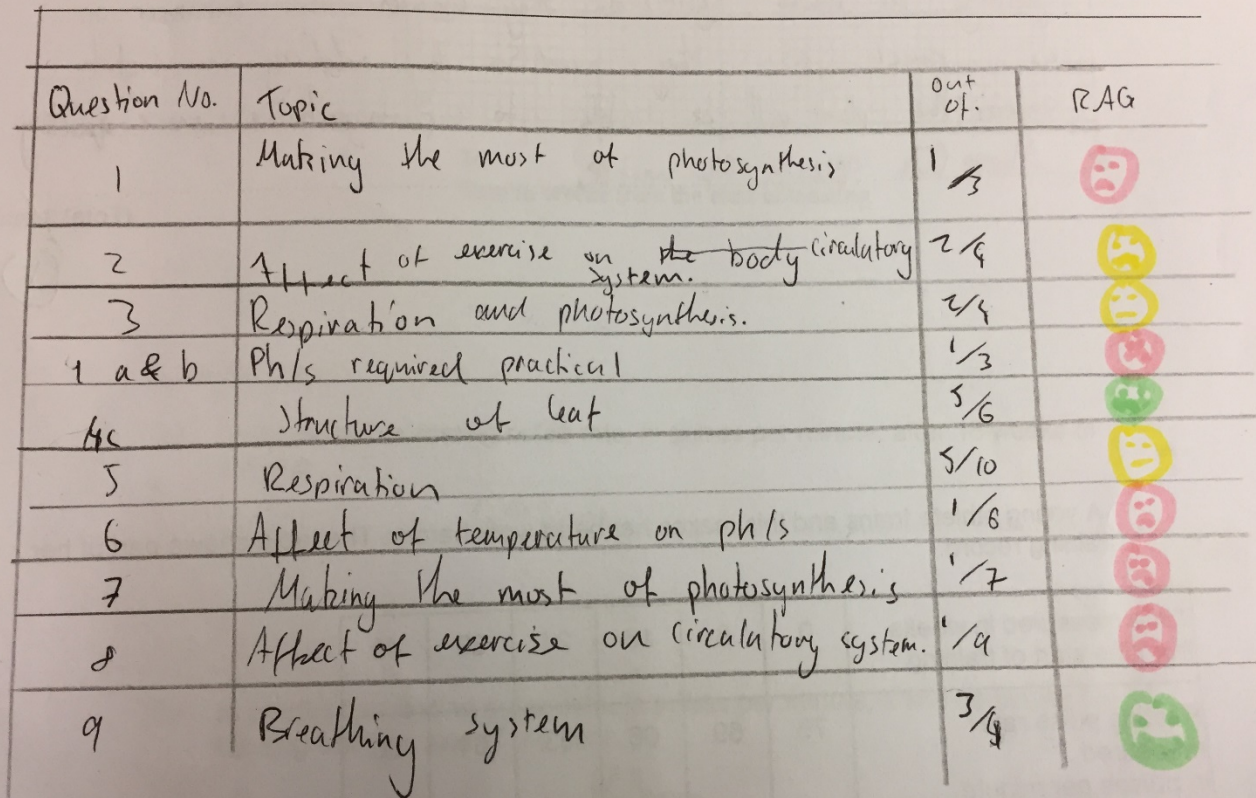 Question No. Topic out of. RAG
1 Making the most of photosynthesis 1/3
2 Affect of exercise on the body circulatory system. 2/4
3 Respiration and photosynthesis. 2/4
1 a & b Ph/s required practical 1/3
4c Structure of leaf 5/6
5 Respiration 5/10
6 Affect of temperature on ph/s 1/6
7 Making the most of photosynthesis 1/7
8 Affect of exercise on circulatory system. 1/9
9 Breathing system 3/4